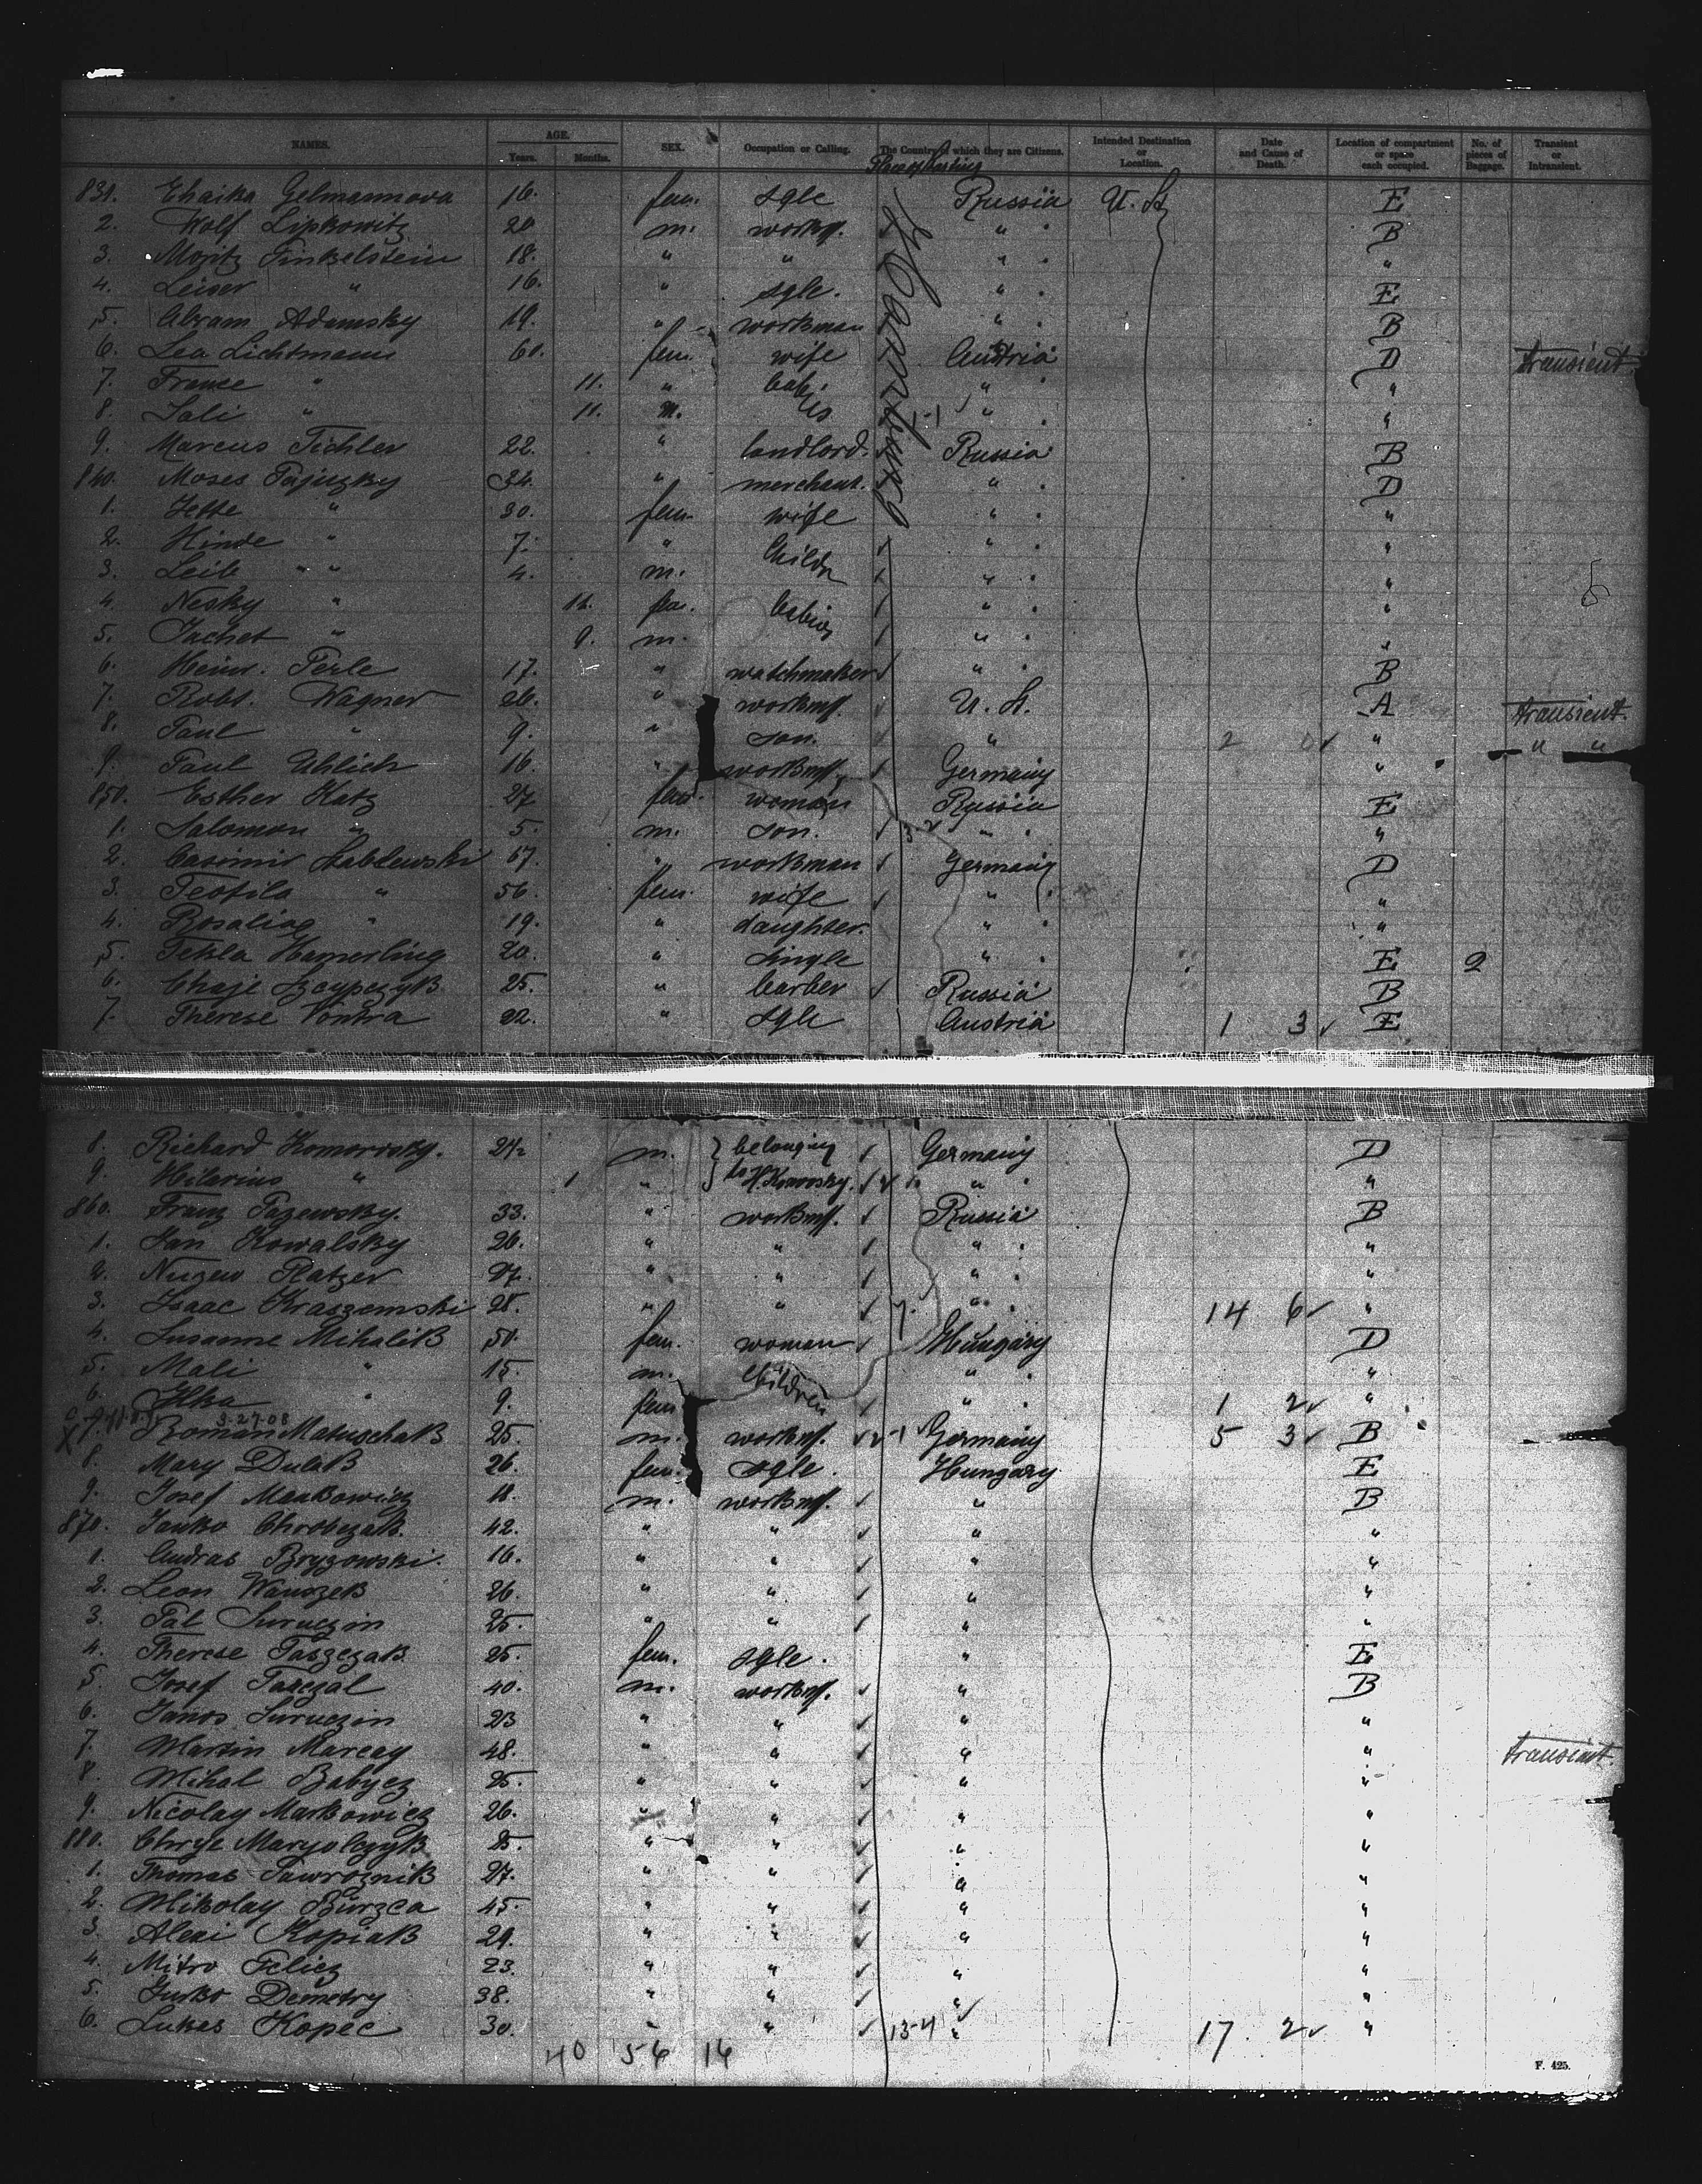 NAMES. AGE. Years. Months. SEX. Occupation or Calling. The Country of which they are Citizens. Intended Destination or Location. Date and Cause of Death. Location of compartment or space each occupied. No. of pieces of Baggage. Transient or Intransient.
831. Chaika Gelmannova 16. fem. sgle Russia U. St. E
2. Wolf Lipkowitz 20 m. workm. " B
3. Moritz Finkelstein 18. " " " "
4. Leiser " 16. " sgle. " E
5. Abram Adamsky 19. " workman " B
6. Lea Lichtmann 60. fem. wife Austria D transient
7. Franse " 11. " " "
8. Sali " 11. m. " "
9. Marcus Tichler 22. " landlord. Russia B
840. Moses 34. " merchant. " D
1. Jette " 30. fem. wife " "
2. Hinde " 7. " Childr " "
3. Leib " 4. m. " "
4. Nesky " 11. fem. babies " "
5. Jachet " 9. m. " "
6. Heinr. Perle 17. " watchmaker " B
7. Robt. Wagner 26. " workm. U. St. A transient.
8. Paul " 9. " son. " 2 0 " " "
9. Paul Uhlich 16. " workm. Germany "
850. Esther Katz 27 fem. woman Russia E
1. Salomon " 5. m. son. " "
2. Casimir Stablewski 67. " workman Germany D
3. Teofila " 56. fem. wife " "
4. Rosalie " 19. " daughter. " "
5. Tekla Hamerling 20. " single " E 2
6. Chaje 25. " barber Russia B
7. Therese Vontra 22. " sgle Austria 1 3 E
8. Richard Komorosky. 24 m. belonging Germany D
9. Hilarius " 1 " to H. Komorosky. " "
860. Franz Pazewsky. 33. " workm. Russia B
1. Jan Kowalsky 26. " " " "
2. Platzer 27. " " " "
3. Isaac Kraszemski 28. " " " 14 6 "
4. Susanne Mihalik 50. fem. woman Hungary D
5. Mali " 15 m. Children " "
6. Ilka " 9. fem " 1 2 "
3-27-08
X 7. Roman Matuschak 25. m. workm. 2-1 Germany 5 3 B
8. Mary Dulak 26. fem. sgle. Hungary E
9. Josef Mankowicz 18. m. workm. " B
870. Janko Chrobczak 42. " " " "
1. Andras Bryzowski. 16. " " " "
2. Leon Wanszek 26. " " " "
3. Pal Suruczin 25. " " " "
4. Therese Taszczak 25. fem. sgle. " E
5. Josef Tarczal 40. m. workm. " B
6. Janos Suruczin 23 " " " "
7. Martin Marcay 48. " " " " transient.
8. Mihal Babycz 25. " " " "
9. Nicolay Markowicz 26. " " " "
880. Chryz Maryolczyk 25 " " " "
1. Thomas Tawroznik 27. " " " "
2. Mikolay Burzca 45. " " " "
3. Alexi Kopiak 29. " " " "
4. Mitro Felicz 23. " " " "
5. Jurko Demetry 38. " " " "
6. Lukas Kopec 30. " " 13-4 " 17. 2 "
40 56 16
F. 425.